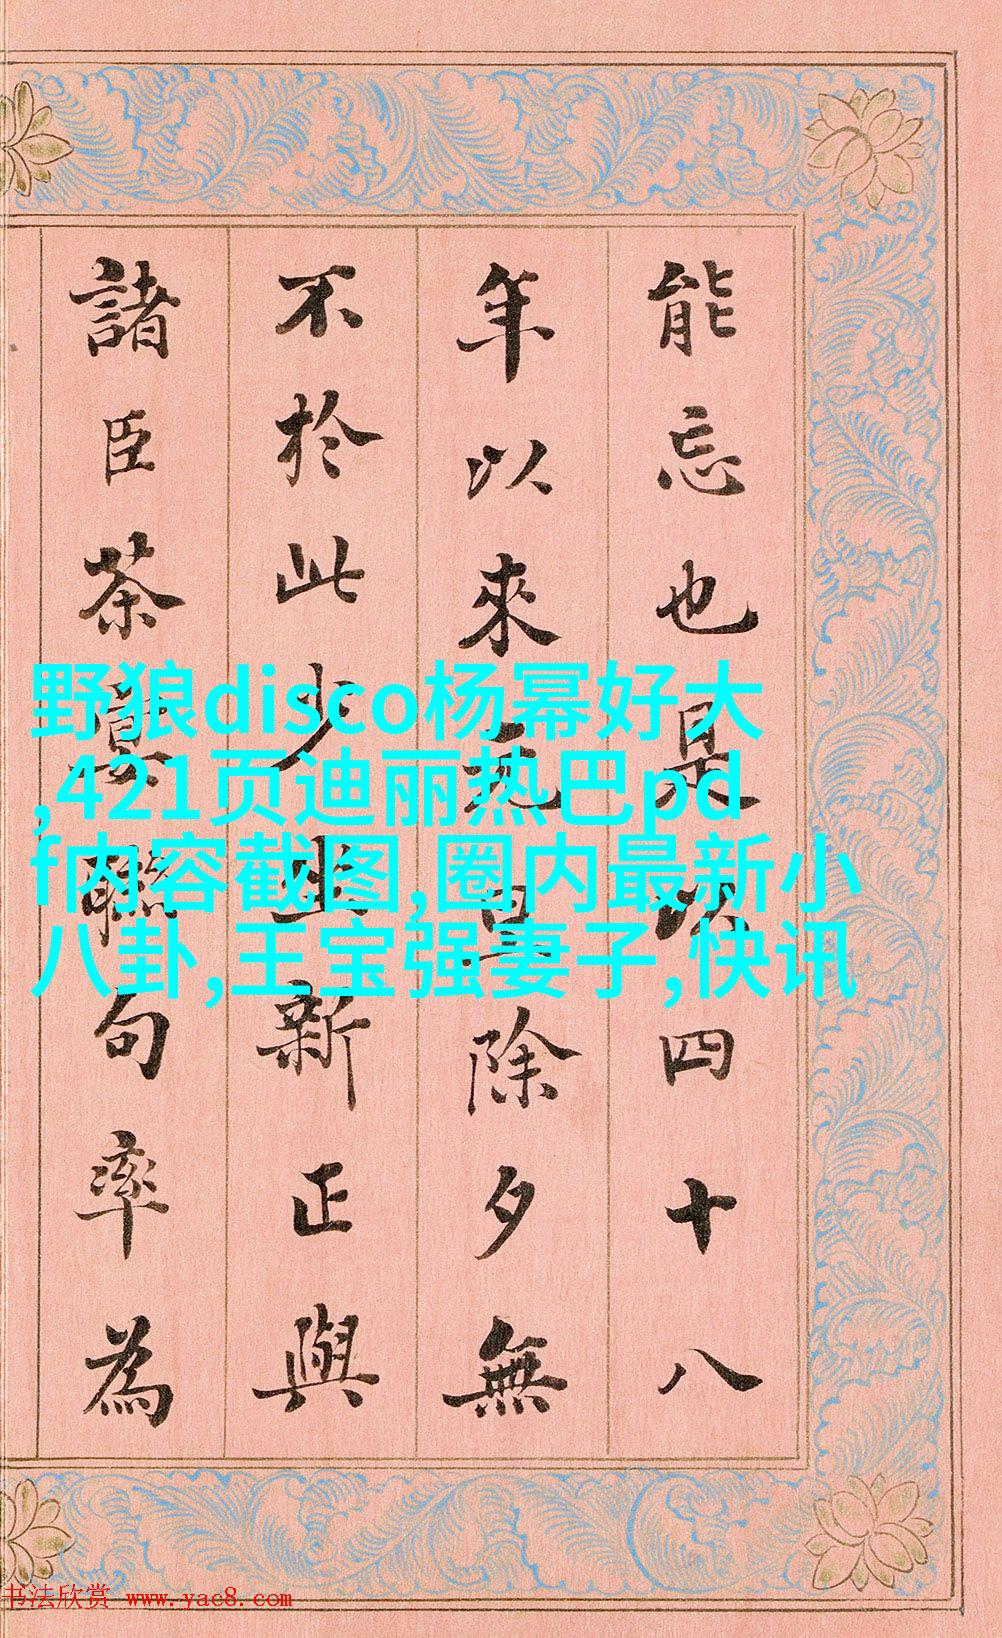 能忘也是以四十八
年以來元旦除夕無
不於此少坐新正與
諸臣茶宴聯句率為
野狼disco杨幂好大
,421页迪丽热巴pd
f内容截图,圈内最新小
八卦,王宝强妻子,快讯
书法欣赏 www.yac8.com